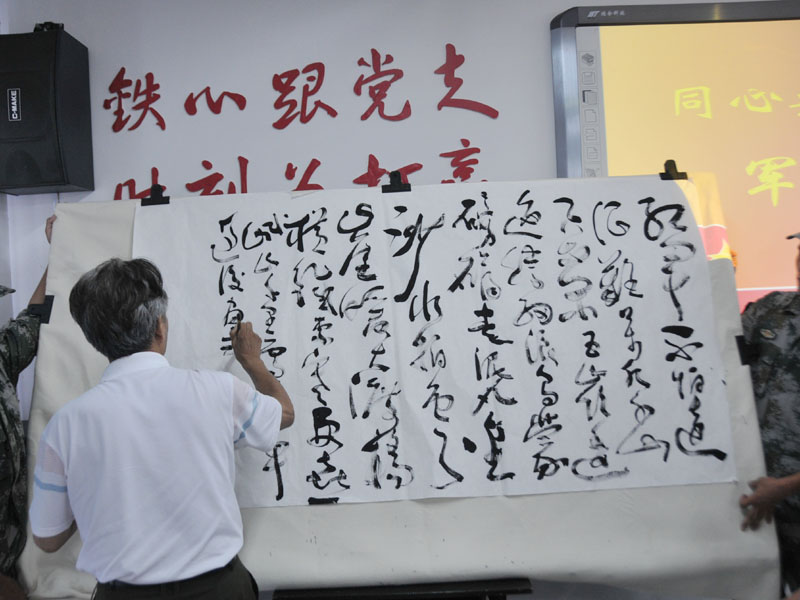 鉄心跟党走
时刻为打赢
C-MARK
同心
军
红军不怕远
征难万水千山
只等闲五岭逶
迤腾细浪乌蒙
磅礴走泥丸金
沙水拍云
崖暖大渡桥
横铁索寒更喜
岷山千里雪三军
过后尽开